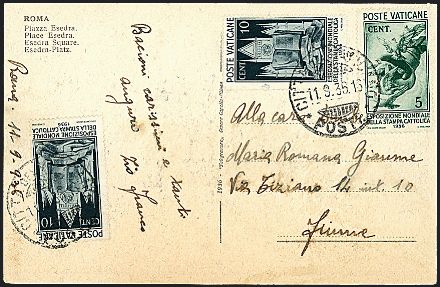 ROMA
Piazza Esedra.
Place Esedra.
Esedra Square.
Esedra-Platz.
Bacioni carissimi e tanti
auguri
zio Franco
Roma 11-9-936
POSTE VATICANE
10
CENT.
ESPOSIZIONE MONDIALE
DELLA STAMPA CATTOLICA
1936
POSTE VATICANE
CENT.
5
ESPOSIZIONE MONDIALE
DELLA STAMPA CATTOLICA
1936
11.9.36.15
POSTE
Alla cara
Maria Romana Giaume
Via Tiziano 14 int. 10
Fiume
POSTE VATICANE
10
CENT.
ESPOSIZIONE MONDIALE
DELLA STAMPA CATTOLICA
1936